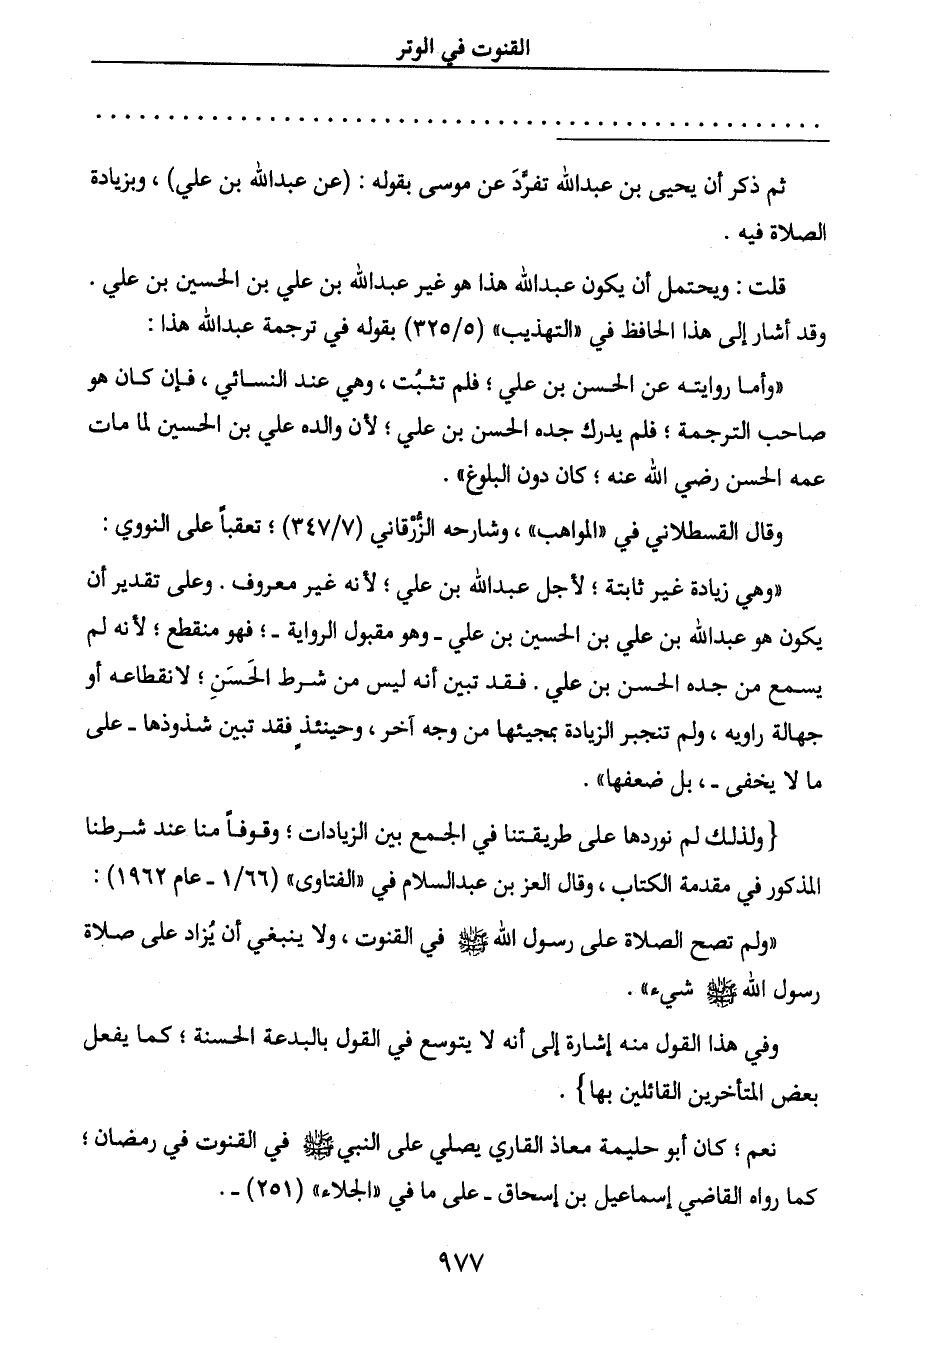 القنوت في الوتر
. . . . . . . . . . . . . . . . . . . . . . . . . . . . . . . . . . . . . . . . . . . . . . . .
ثم ذكر أن يحيى بن عبدالله تفرَّدَ عن موسى بقوله : (عن عبدالله بن علي) ، وبزيادة
الصلاة فيه .
قلت : ويحتمل أن يكون عبدالله هذا هو غير عبدالله بن علي بن الحسين بن علي .
وقد أشار إلى هذا الحافظ في «التهذيب» (٣٢٥/٥) بقوله في ترجمة عبدالله هذا :
«وأما روايته عن الحسن بن علي ؛ فلم تثبُت ، وهي عند النسائي ، فإن كان هو
صاحب الترجمة ؛ فلم يدرك جده الحسن بن علي ؛ لأن والده علي بن الحسين لما مات
عمه الحسن رضي الله عنه ؛ كان دون البلوغ» .
وقال القسطلاني في «المواهب» ، وشارحه الزُّرْقاني (٣٤٧/٧) ؛ تعقباً على النووي :
«وهي زيادة غير ثابتة ؛ لأجل عبدالله بن علي ؛ لأنه غير معروف . وعلى تقدير أن
يكون هو عبدالله بن علي بن الحسين بن علي ـ وهو مقبول الرواية ـ ؛ فهو منقطع ؛ لأنه لم
يسمع من جده الحسن بن علي . فقد تبين أنه ليس من شرط الحَسَنِ ؛ لانقطاعه أو
جهالة راويه ، ولم تنجبر الزيادة بمجيئها من وجه آخر ، وحينئذٍ فقد تبين شذوذها ـ على
ما لا يخفى ـ ، بل ضعفها» .
{ولذلك لم نوردها على طريقتنا في الجمع بين الزيادات ؛ وقوفاً منا عند شرطنا
المذكور في مقدمة الكتاب ، وقال العز بن عبدالسلام في «الفتاوى» (١/٦٦ ـ عام ١٩٦٢) :
«ولم تصح الصلاة على رسول الله ﷺ في القنوت ، ولا ينبغي أن يُزاد على صلاة
رسول الله ﷺ شيء» .
وفي هذا القول منه إشارة إلى أنه لا يتوسع في القول بالبدعة الحسنة ؛ كما يفعل
بعض المتأخرين القائلين بها} .
نعم ؛ كان أبو حليمة معاذ القاري يصلي على النبي ﷺ في القنوت في رمضان ؛
كما رواه القاضي إسماعيل بن إسحاق ـ على ما في «الجلاء» (٢٥١) ـ .
٩٧٧